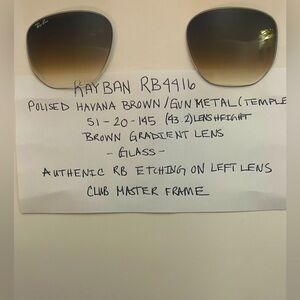 Ray-Ban
RAYBAN RB4416
POLISED HAVANA BROWN/GUNMETAL(TEMPLE
51-20-145 (43.2)LENSHEIGHT
BROWN GRADIENT LENS
-GLASS-
AUTHENIC RB ETCHING ON LEFT LENS
CLUB MASTER FRAME